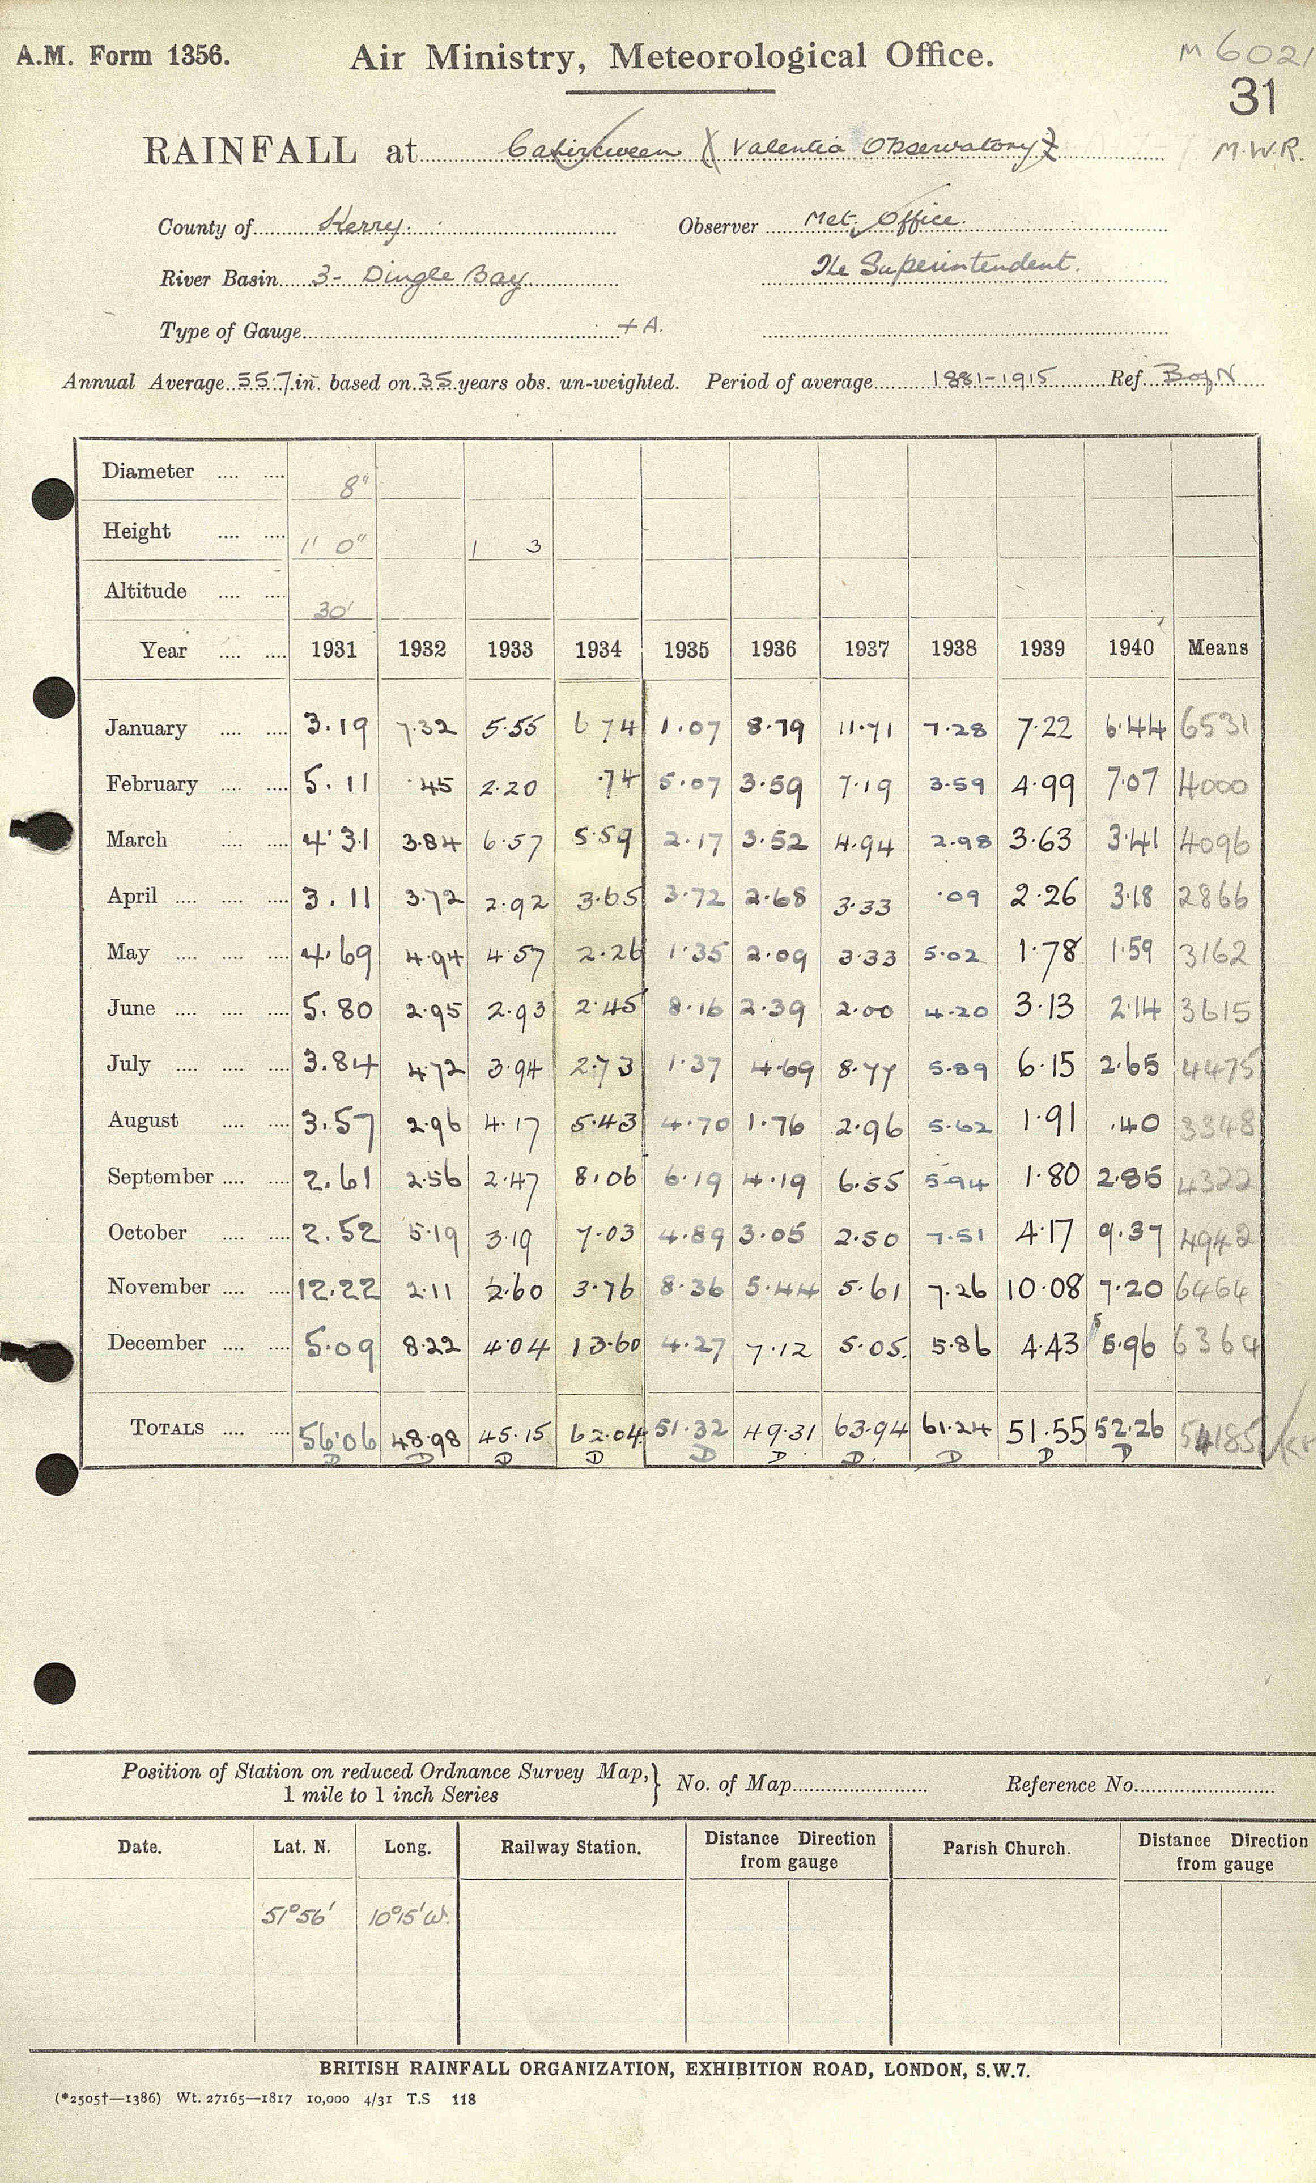 A.M. Form 1356. Air Ministry, Meteorological Office. M 6021
31
RAINFALL at Cahirciveen (Valentia Observatory) M.W.R.
County of Kerry. Observer Met. Office.
The Superintendent.
River Basin 3- Dingle Bay
Type of Gauge + A.
Annual Average 55.7 in. based on 35 years obs. un-weighted. Period of average 1881-1915 Ref. B of N
Diameter 8"
Height 1' 0" 1 3
Altitude 30'
Year 1931 1932 1933 1934 1935 1936 1937 1938 1939 1940 Means
January 3.19 7.32 5.55 6 74 1.07 8.79 11.71 7.28 7.22 6.44 6531
February 5.11 .45 2.20 .74 5.07 3.59 7.19 3.59 4.99 7.07 4000
March 4.31 3.84 6.57 5.59 2.17 3.52 4.94 2.98 3.63 3.41 4096
April 3.11 3.72 2.92 3.65 3.72 2.68 3.33 .09 2.26 3.18 2866
May 4.69 4.94 4.57 2.26 1.35 2.09 3.33 5.02 1.78 1.59 3162
June 5.80 2.95 2.93 2.45 8.16 2.39 2.00 4.20 3.13 2.14 3615
July 3.84 4.72 3.94 2.73 1.37 4.69 8.77 5.89 6.15 2.65 4475
August 3.57 2.96 4.17 5.43 4.70 1.76 2.96 5.62 1.91 .40 3348
September 2.61 2.56 2.47 8.06 6.19 4.19 6.55 5.94 1.80 2.85 4322
October 2.52 5.19 3.19 7.03 4.89 3.05 2.50 7.51 4.17 9.37 4942
November 12.22 2.11 2.60 3.76 8.36 5.44 5.61 7.26 10.08 7.20 6464
December 5.09 8.22 4.04 13.60 4.27 7.12 5.05 5.86 4.43 5.96 6364
TOTALS 56.06 48.98 45.15 62.04 51.32 49.31 63.94 61.24 51.55 52.26 54185
D D D D D D D D D D
Position of Station on reduced Ordnance Survey Map, No. of Map Reference No.
1 mile to 1 inch Series
Date. Lat. N. Long. Railway Station. Distance Direction from gauge Parish Church. Distance Direction from gauge
51°56' 10°15'W.
BRITISH RAINFALL ORGANIZATION, EXHIBITION ROAD, LONDON, S.W.7.
(*2505†—1386) Wt. 27165—1817 10,000 4/31 T.S 118